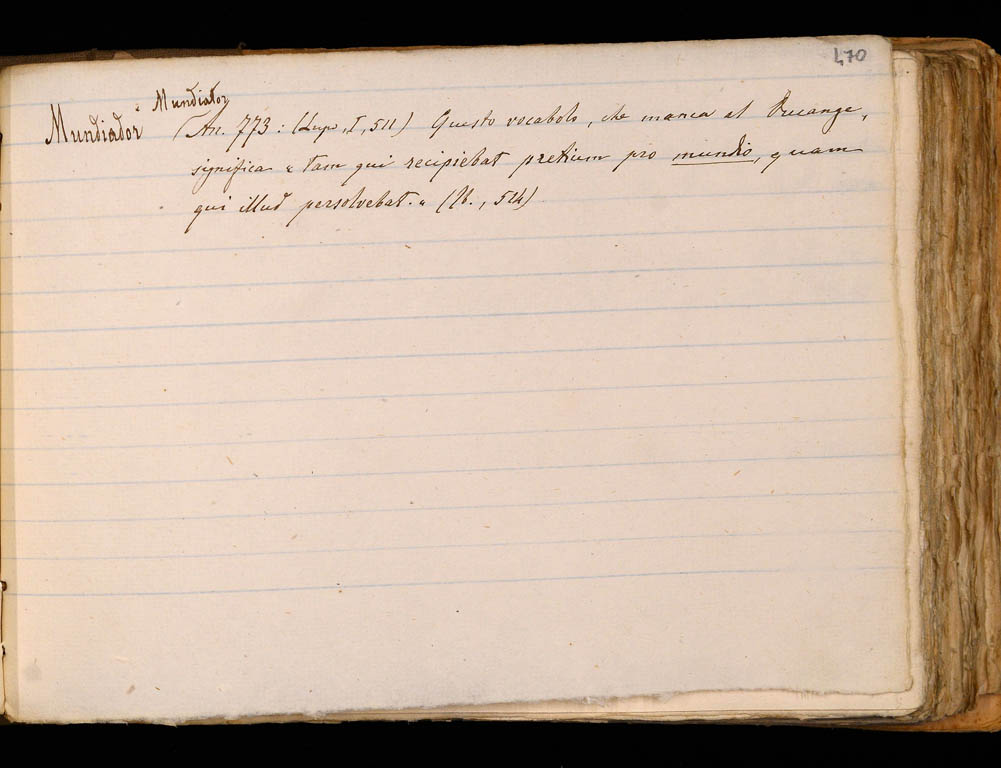 470
Mundiador e Mundiator
(An. 773: (Lupo, I, 511) Questo vocabolo, che manca al Ducange,
significa « tam qui recipiebat pretium pro mundio, quam
qui illud persolvebat. » (Ib., 514)